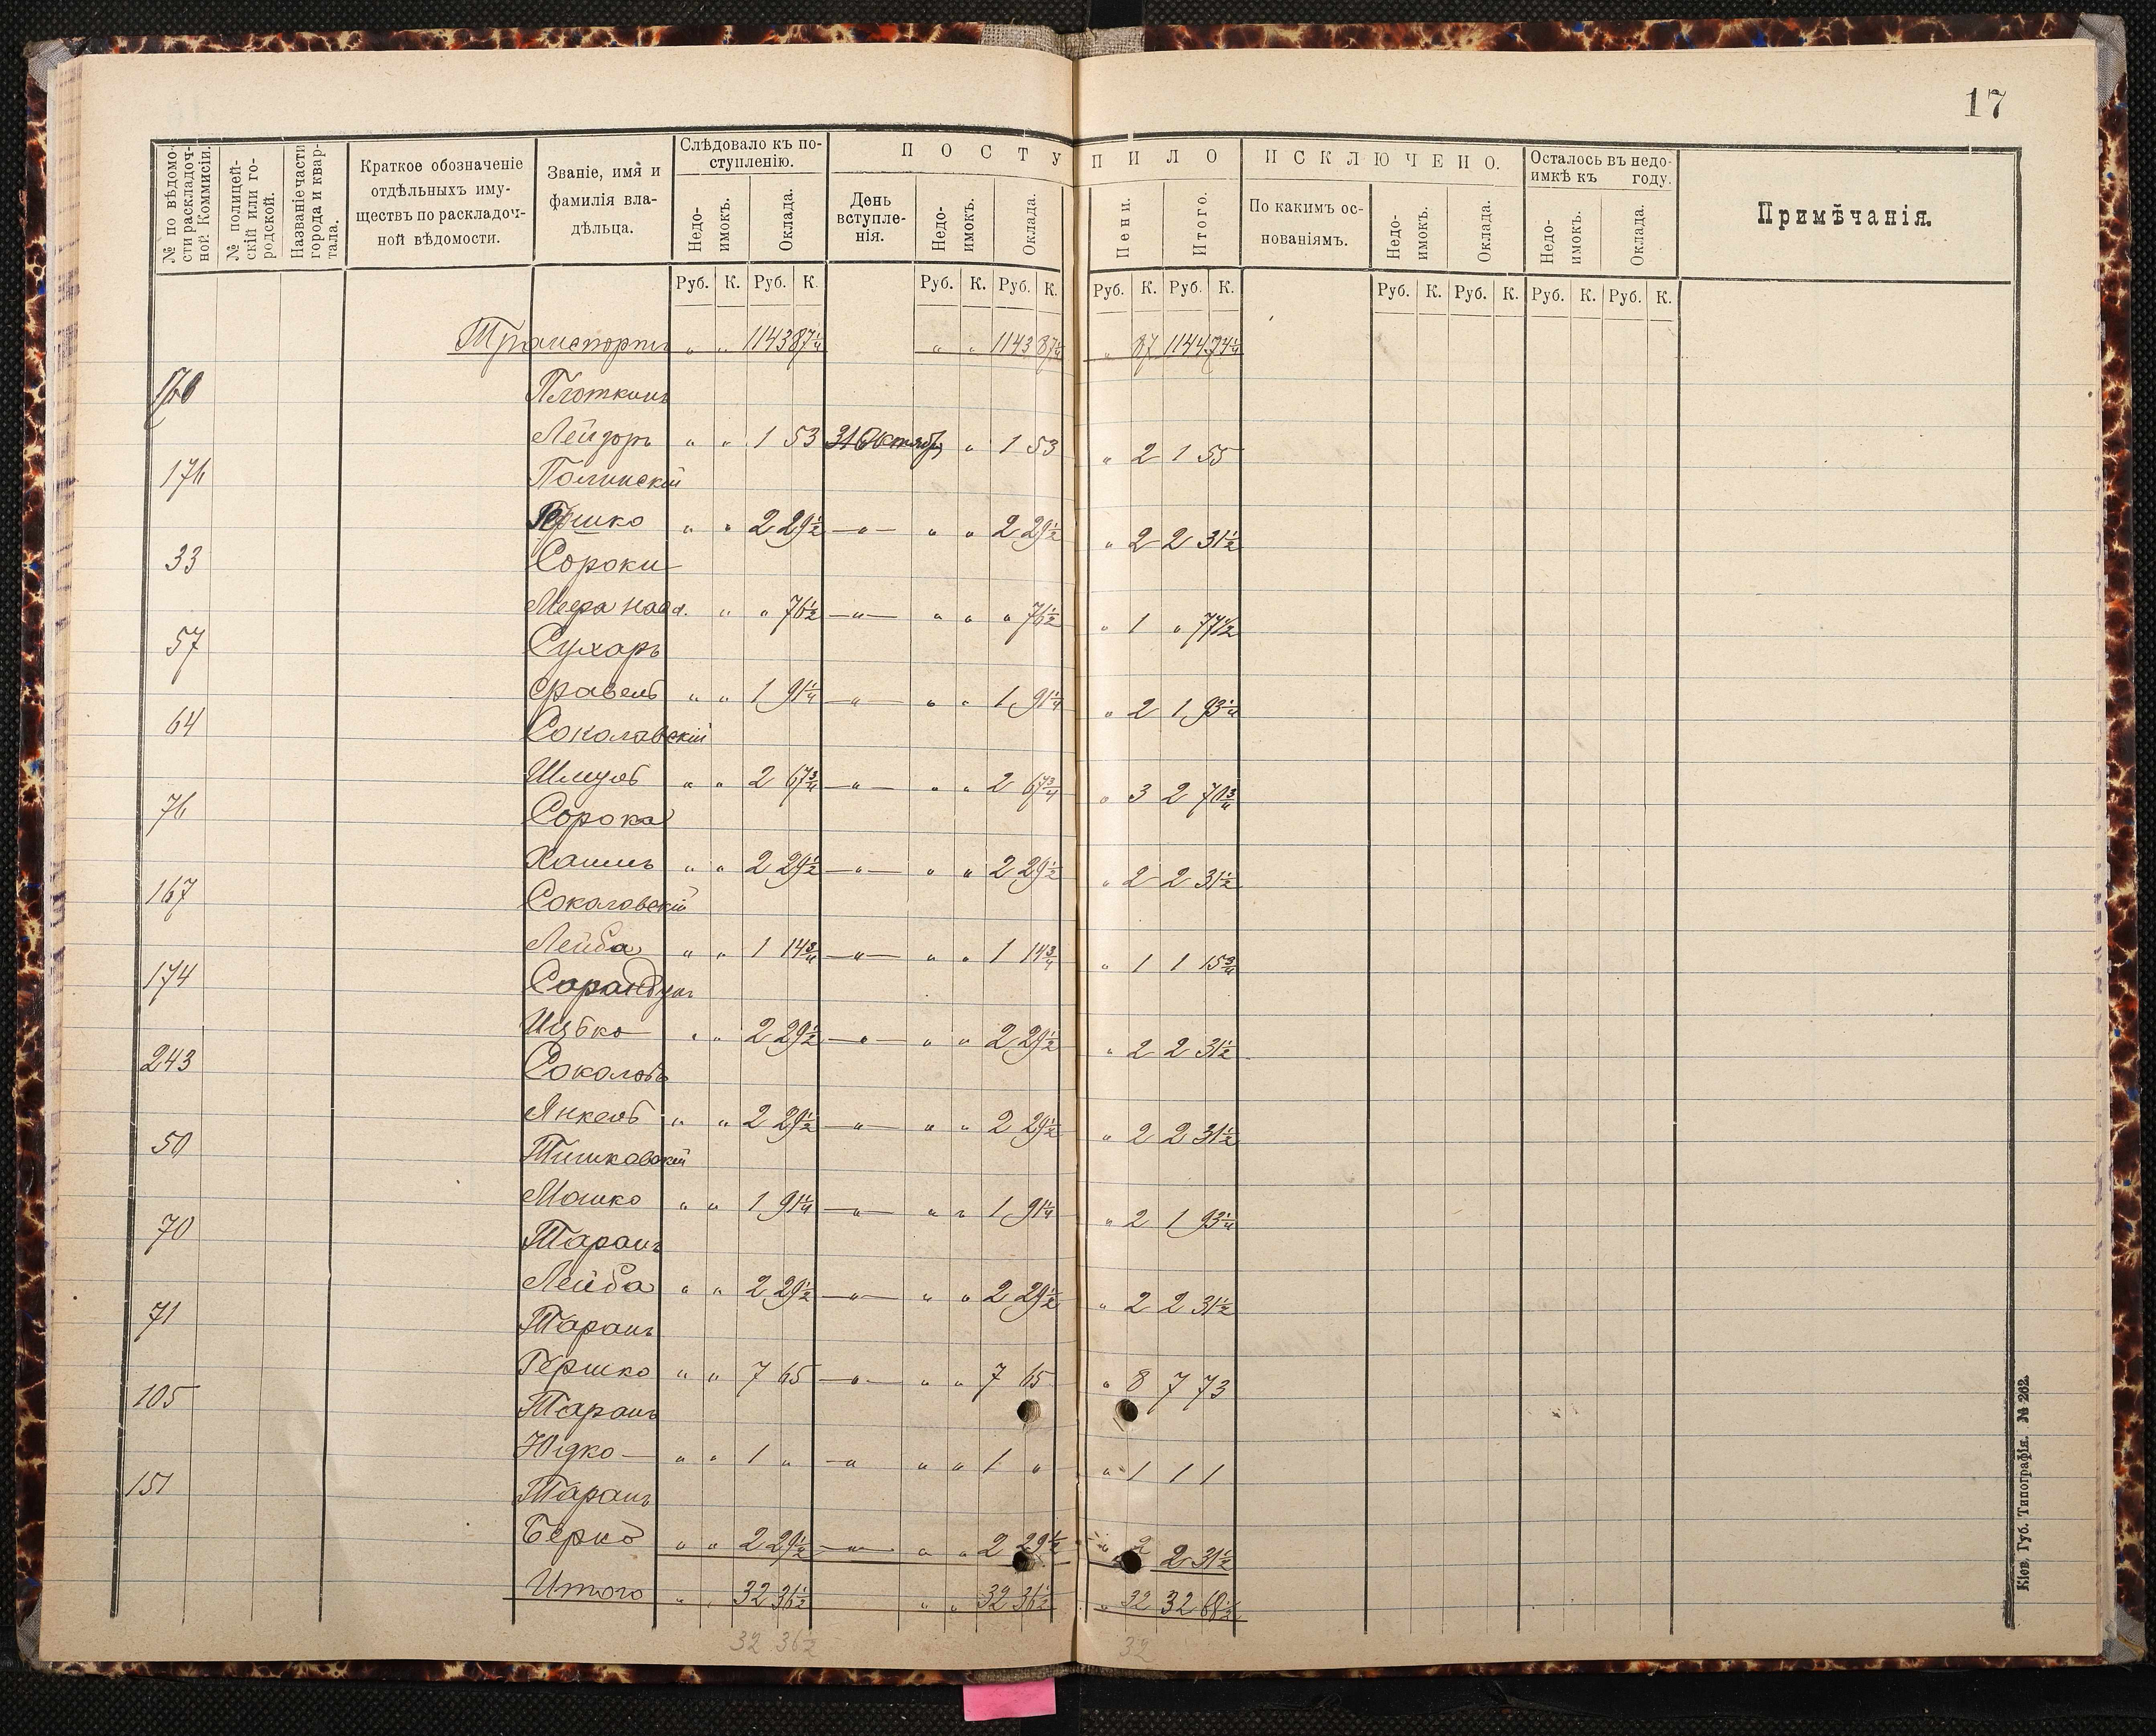 17
№ по вѣдомо-
сти раскладоч-
ной Коммисіи.
№ полицей-
скій или го-
родской.
Названіе части
города и квар-
тала.
Краткое обозначеніе
отдѣльныхъ иму-
ществъ по раскладоч-
ной вѣдомости.
Званіе, имя и
фамилія вла-
дѣльца.
Слѣдовало къ по-
ступленію.
Недо-
имокъ.
Оклада.
ПОСТУПИЛО
День
вступле-
нія.
Недо-
имокъ.
Оклада.
Пени.
Итого.
ИСКЛЮЧЕНО.
По какимъ ос-
нованіямъ.
Недо-
имокъ.
Оклада.
Осталось въ недо-
имкѣ къ году.
Недо-
имокъ.
Оклада.
Примѣчанія.
Руб. К. Руб. К. Руб. К. Руб. К. Руб. К. Руб. К. Руб. К. Руб. К. Руб. К. Руб. К.
Транспортъ " " 1143 87¼ " " 1143 87¼ " 87 1144 74¼
160 Плоткинъ
Лейзоръ " " 1 53 31 Октябр " 1 53 " 2 1 55
176 Полинскій
Гершко " " 2 29½ —"— " " 2 29½ " 2 2 31½
33 Сороки
Меера насл. " " 76½ —"— " " " 76½ " 1 " 77½
57 Сухаръ
Сравель " " 1 91¼ —"— " " 1 91¼ " 2 1 93¼
64 Соколовскій
Шмуль " " 2 67¾ —"— " " 2 67¾ " 3 2 70¾
76 Сорока
Хаимъ " " 2 29½ —"— " " 2 29½ " 2 2 31½
167 Соколовскій
Лейба " " 1 14¾ —"— " " 1 14¾ " 1 1 15¾
174 Сарандукъ
Ицько " " 2 29½ —"— " " 2 29½ " 2 2 31½
243 Соколовъ
Янкель " " 2 29½ —"— " " 2 29½ " 2 2 31½
50 Тишковскій
Мошко " " 1 91¼ —"— " " 1 91¼ " 2 1 93¼
70 Таранъ
Лейба " " 2 29½ —"— " " 2 29½ " 2 2 31½
71 Таранъ
Гершко " " 7 65 —"— " " 7 65 " 8 7 73
105 Таранъ
Юдко " " 1 " —"— " " 1 " " 1 1 1
151 Таранъ
Берко " " 2 29½ —"— " " 2 29½ " 2 2 31½
Итого " " 32 36½ " " 32 36½ " 32 32 68½
32 36½ 32
Кіев. Губ. Типографія. № 262.